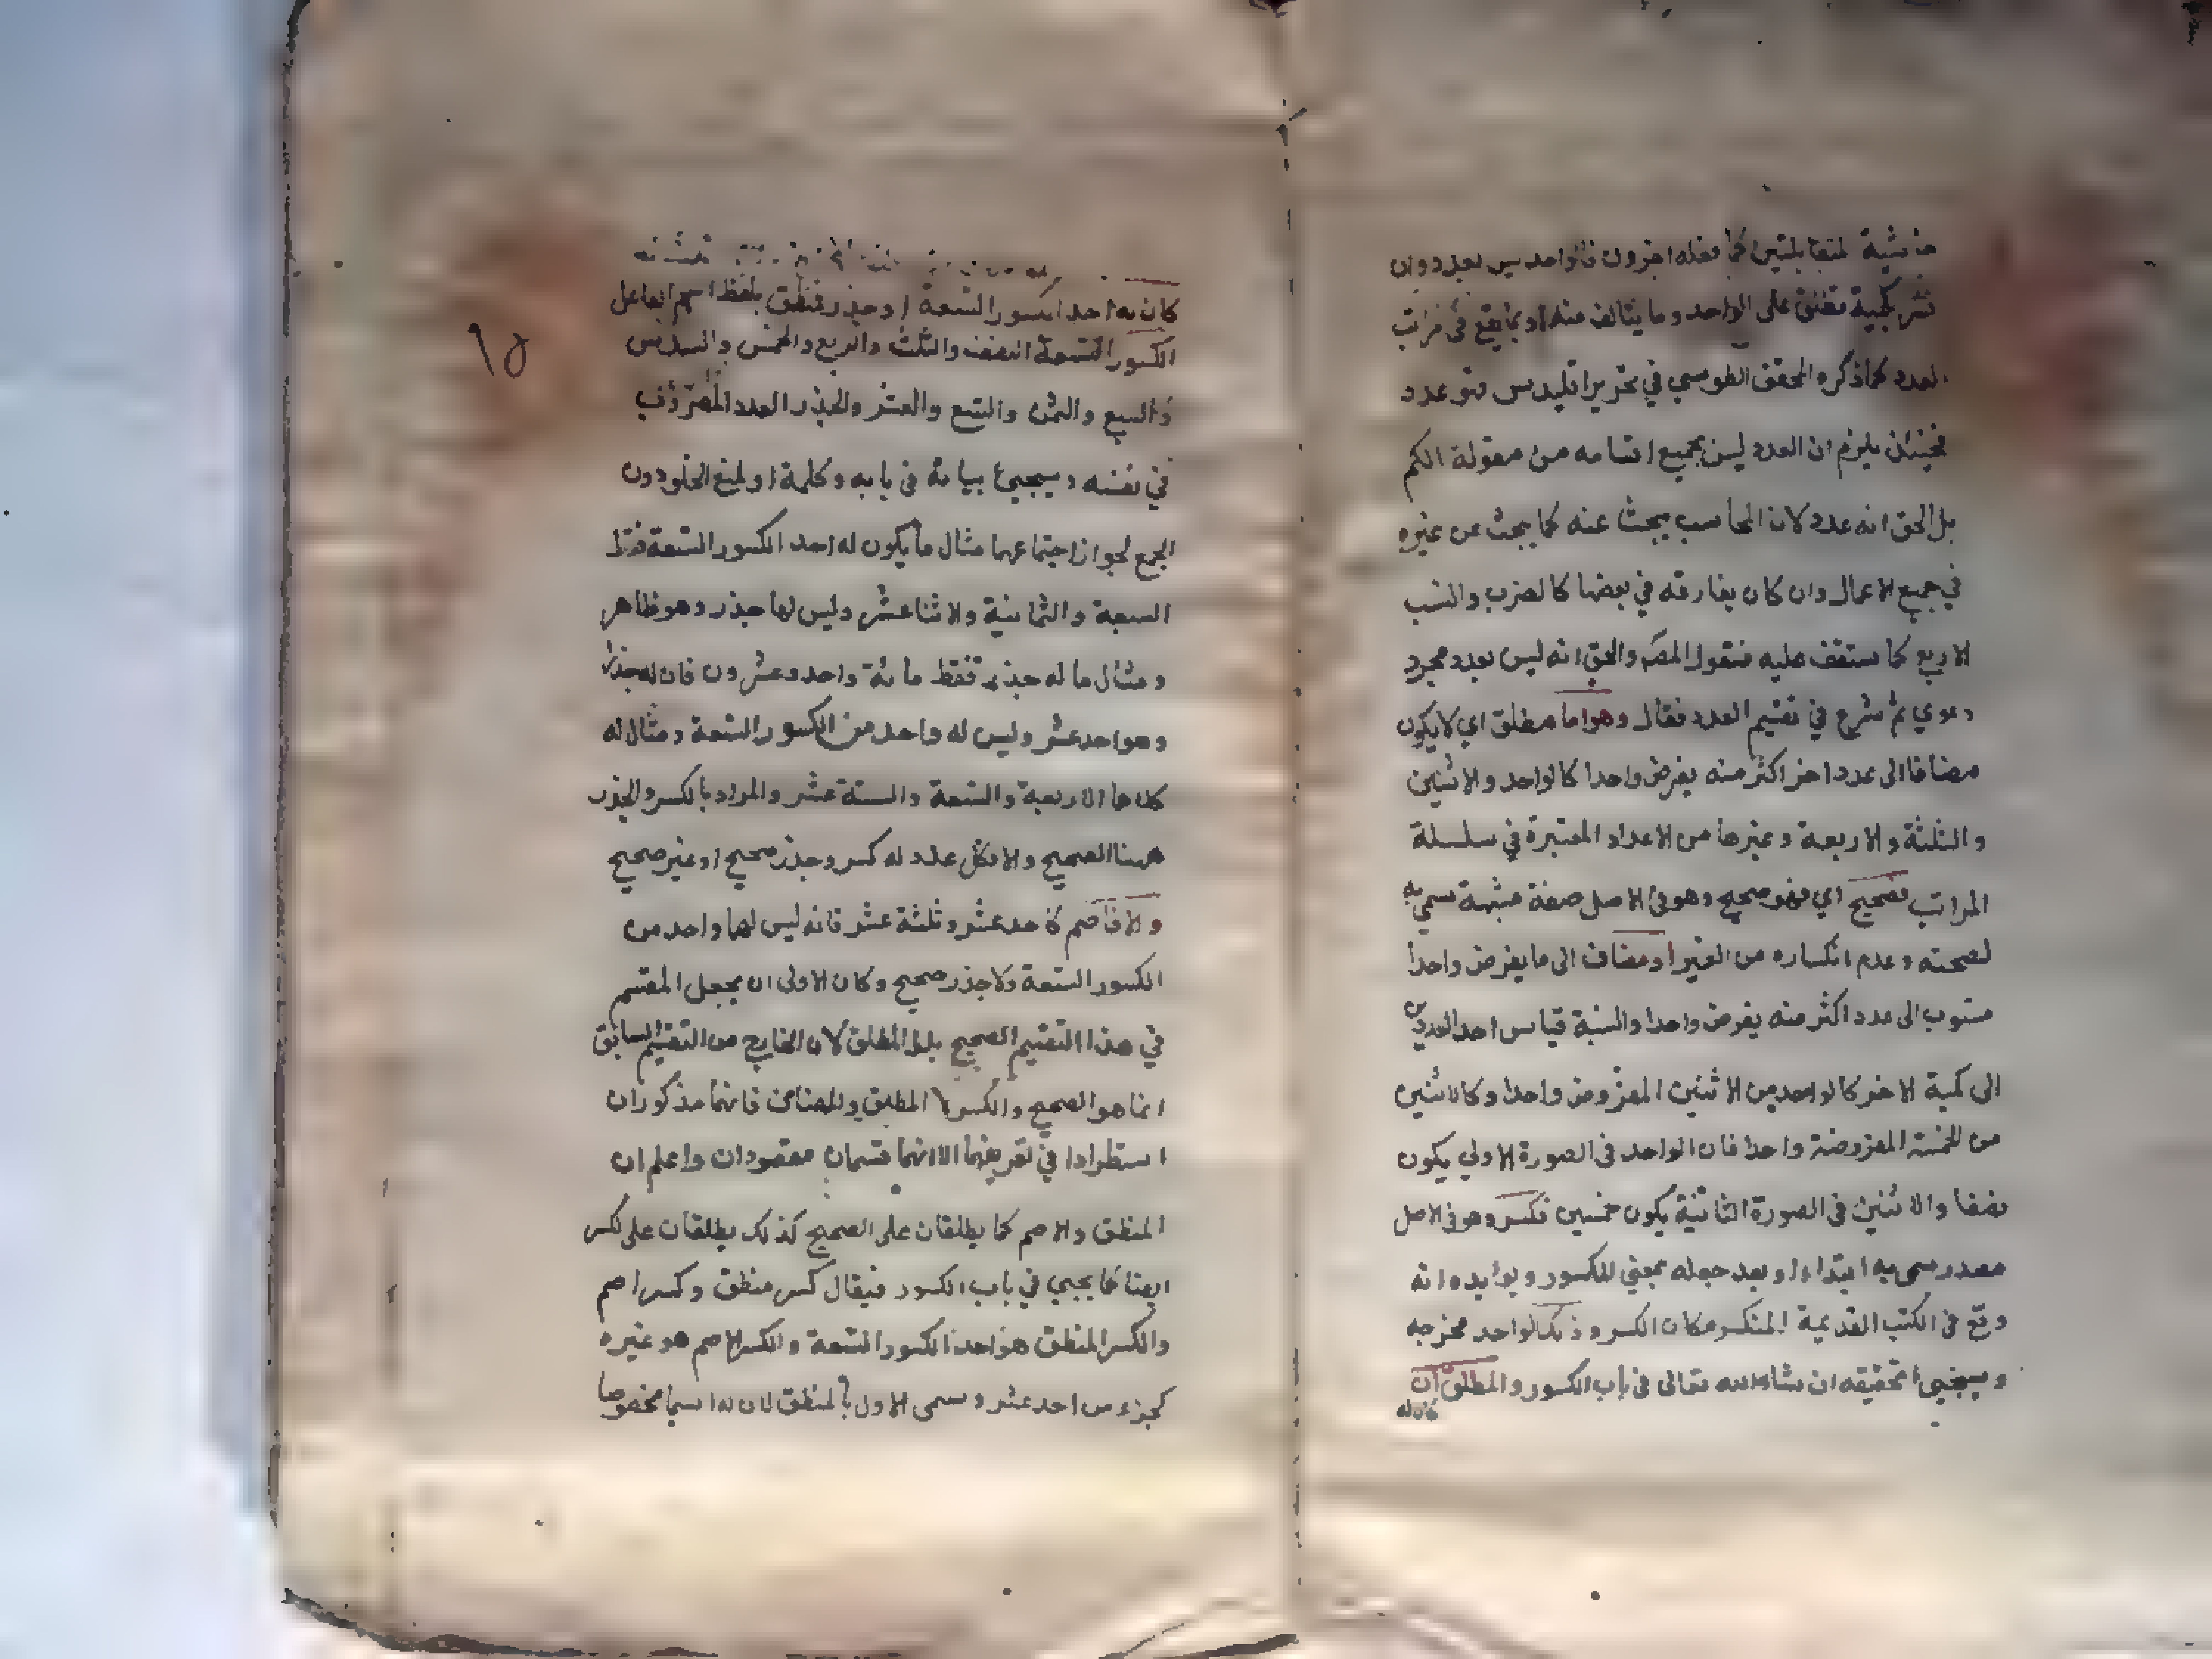 حاشيتيه المتقابلتين كما فعله اخرون فالواحد ليس بعدد وان
فسر بكمية تطلق على الواحد وما يتالف منه او بما يقع في مراتب
العدد كما ذكره المحقق الطوسي في تحرير اقليدس فهو عدد
فحينئذ يلزم ان العدد ليس بجميع اقسامه من مقولة الكم
بل الحق انه عدد لان المحاسب يبحث عنه كما يبحث عن غيره
في جميع الاعمال وان كان يفارقه في بعضها كالضرب والنسب
الاربع كما ستقف عليه فنقول المصم والحق انه ليس بعدد مجرد
دعوي ثم شرع في تقسيم العدد فقال وهو اما مطلق اي لا يكون
مضافا الى عدد اخر اكثر منه يفرض واحدا كالواحد والاثنين
والثلثة والاربعة وغيرها من الاعداد المعتبرة في سلسلة
المراتب فصحيح اي فهو صحيح وهو في الاصل صفة مشبهة سمي به
لصحته وعدم انكساره من الغير او مضاف الى ما يفرض واحدا
منسوب الى عدد اكثر منه يفرض واحدا والنسبة قياس احد العددين
الى كمية الاخر كالواحد من الاثنين المفروض واحدا وكالاثنين
من الخمسة المفروضة واحدا فان الواحد في الصورة الاولي يكون
نصفا والاثنين في الصورة الثانية يكون خمسين فكسر وهو في الاصل
مصدر سمي به ابتداء او بعد جعله بمعني المكسور ويوايده انه
وقع في الكتب القديمة المنكسر مكان الكسر وذلك الواحد مخرجه
وسيجيئ تحقيقه ان شاء الله تعالى في باب الكسور والمطلق ان
كان له
١٥
كان له احد الكسور التسعة او جذر فمنطق بلفظ اسم الفاعل
الكسور التسعة النصف والثلث والربع والخمس والسدس
والسبع والثمن والتسع والعشر والجذر العدد المضروب
في نفسه وسيجيئ بيانه في بابه وكلمة او لمنع الخلو دون
الجمع لجواز اجتماعهما مثال ما يكون له احد الكسور التسعة فقط
السبعة والثمانية والاثنا عشر وليس لها جذر وهو ظاهر
ومثال ما له جذر فقط مائة واحد وعشرون فان له جذرا
وهو احد عشر وليس له واحد من الكسور التسعة ومثال له
كلاهما الاربعة والتسعة والستة عشر والمراد بالكسر والجذر
ههنا الصحيح والا فكل عدد له كسر وجذر صحيح او غير صحيح
والا فاصم كاحد عشر وثلثة عشر فانه ليس لها واحد من
الكسور التسعة ولا جذر صحيح وكان الاولى ان يجعل المقسم
في هذا التقسيم الصحيح بدل المطلق لان الخارج من التقسيم السابق
انما هو الصحيح والكسر لا المطلق والمضاف فانهما مذكوران
استطرادا في تعريفهما الا انهما قسمان مقصودان واعلم ان
المنطق والاصم كما يطلقان على الصحيح كذلك يطلقان على الكسر
ايضا كما يجيي في باب الكسور فيقال كسر منطق وكسر اصم
والكسر المنطق هو احد الكسور التسعة والكسر الاصم هو غيره
كجزء من احد عشر وسمى الاول بالمنطق لان له اسما مخصوصا